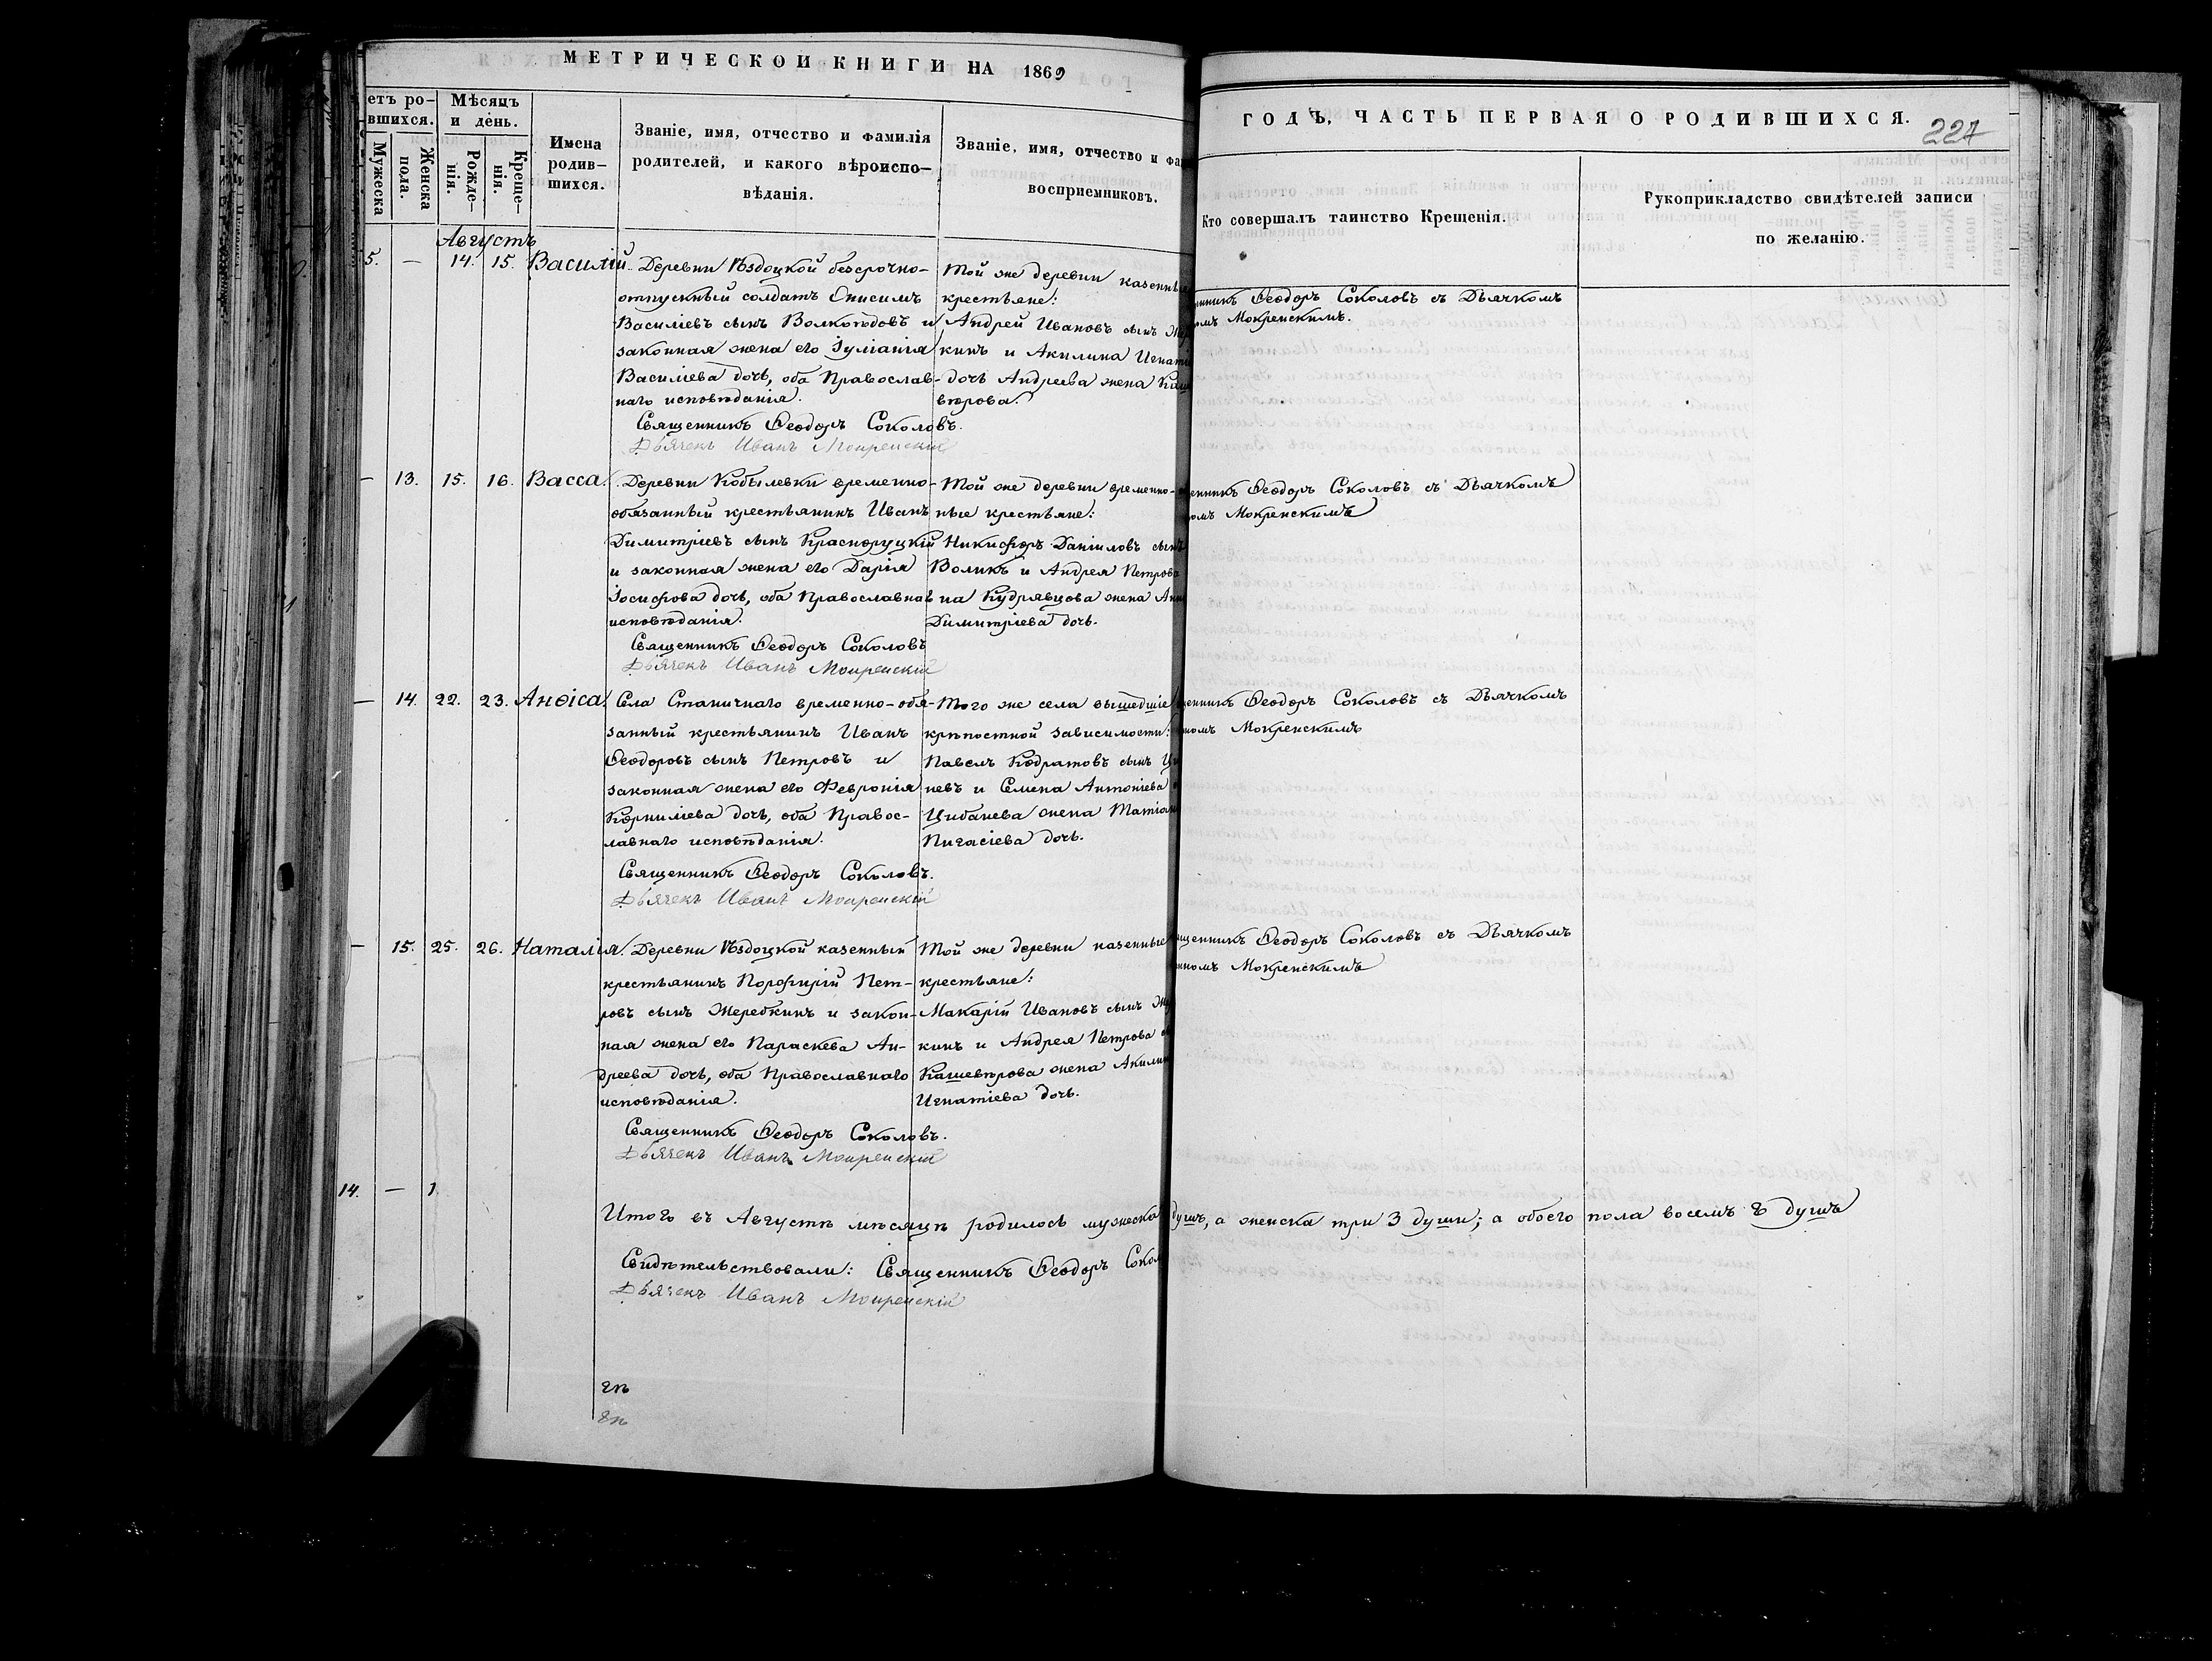 МЕТРИЧЕСКОИ КНИГИ НА 1869
етъ ро-
вшихся.
Мужеска
пола.
Женска
Мѣсяцъ
и день.
Рожде-
нія.
Креще-
нія.
Имена
родив-
шихся.
Званіе, имя, отчество и фамилія
родителей, и какого вѣроиспо-
вѣданія.
Званіе, имя, отчество и фа
восприемниковъ.
ГОДЪ, ЧАСТЬ ПЕРВАЯ О РОДИВШИХСЯ.
227
Кто совершалъ таинство Крещенія.
Рукоприкладство свидѣтелей записи
по желанію.
Августъ
5. — 14. 15. Василій.
Деревни Ѣздоцкой безсрочно-
отпускный солдатъ Онисимъ
Василіевъ сынъ Волкоѣдовъ и
законная жена его Іуліанія
Василіева дочь, оба Православ-
наго исповѣданія.
Священникъ Ѳеодоръ Соколовъ.
Дьячекъ Иванъ Мокренскій
Той же деревни казенные
крестьяне:
Андрей Ивановъ сынъ Же
кинъ и Акилина Игнаті
дочь Андреева жена Каш
вѣрова.
нникъ Ѳеодоръ Соколовъ съ Дьячкомъ
омъ Мокренскимъ.
— 13. 15. 16. Васса.
Деревни Кобылевки временно-
обязанный крестьянинъ Иванъ
Димитріевъ сынъ Красноруцкій
и законная жена его Дарія
Іосифова дочь, оба Православнаго
исповѣданія.
Священникъ Ѳеодоръ Соколовъ
Дьячекъ Иванъ Мокренскій
Той же деревни временно-
ные крестьяне:
Никифоръ Даніиловъ сынъ
Воликъ и Андрея Петрова
на Кудрявцова жена Анн
Димитріева дочь.
енникъ Ѳеодоръ Соколовъ съ Дьячкомъ
омъ Мокренскимъ
— 14. 22. 23. Анѳіса.
Села Станичнаго временно-обя-
занный крестьянинъ Иванъ
Ѳеодоровъ сынъ Петровъ и
законная жена его Февронія
Корниліева дочь, оба Правос-
лавнаго исповѣданія.
Священникъ Ѳеодоръ Соколовъ.
Дьячекъ Иванъ Мокренскій
Того же села вышедшіе
крѣпостной зависимости:
Павелъ Кодратовъ сынъ Ци
невъ и Семена Антоніева
Цибанева жена Татіан
Пигасіева дочь.
щенникъ Ѳеодоръ Соколовъ съ Дьячкомъ
номъ Мокренскимъ
— 15. 25. 26. Наталія.
Деревни Ѣздоцкой казенный
крестьянинъ Порфирій Пет-
ровъ сынъ Жеребкинъ и закон-
ная жена его Параскева Ан-
дреева дочь, оба Православнаго
исповѣданія.
Священникъ Ѳеодоръ Соколовъ.
Дьячекъ Иванъ Мокренскій
Той же деревни казенные
крестьяне:
Макарій Ивановъ сынъ Же
кинъ и Андрея Петрова
Кашевѣрова жена Акилин
Игнатіева дочь.
щенникъ Ѳеодоръ Соколовъ съ Дьячкомъ
нномъ Мокренскимъ
14. — 1
Итого въ Августѣ мѣсяцѣ родилось мужеска душъ, а женска три 3 души; а обоего пола восемь 8 душъ
Свидѣтельствовали: Священникъ Ѳеодоръ Сокол
Дьячекъ Иванъ Мокренскій